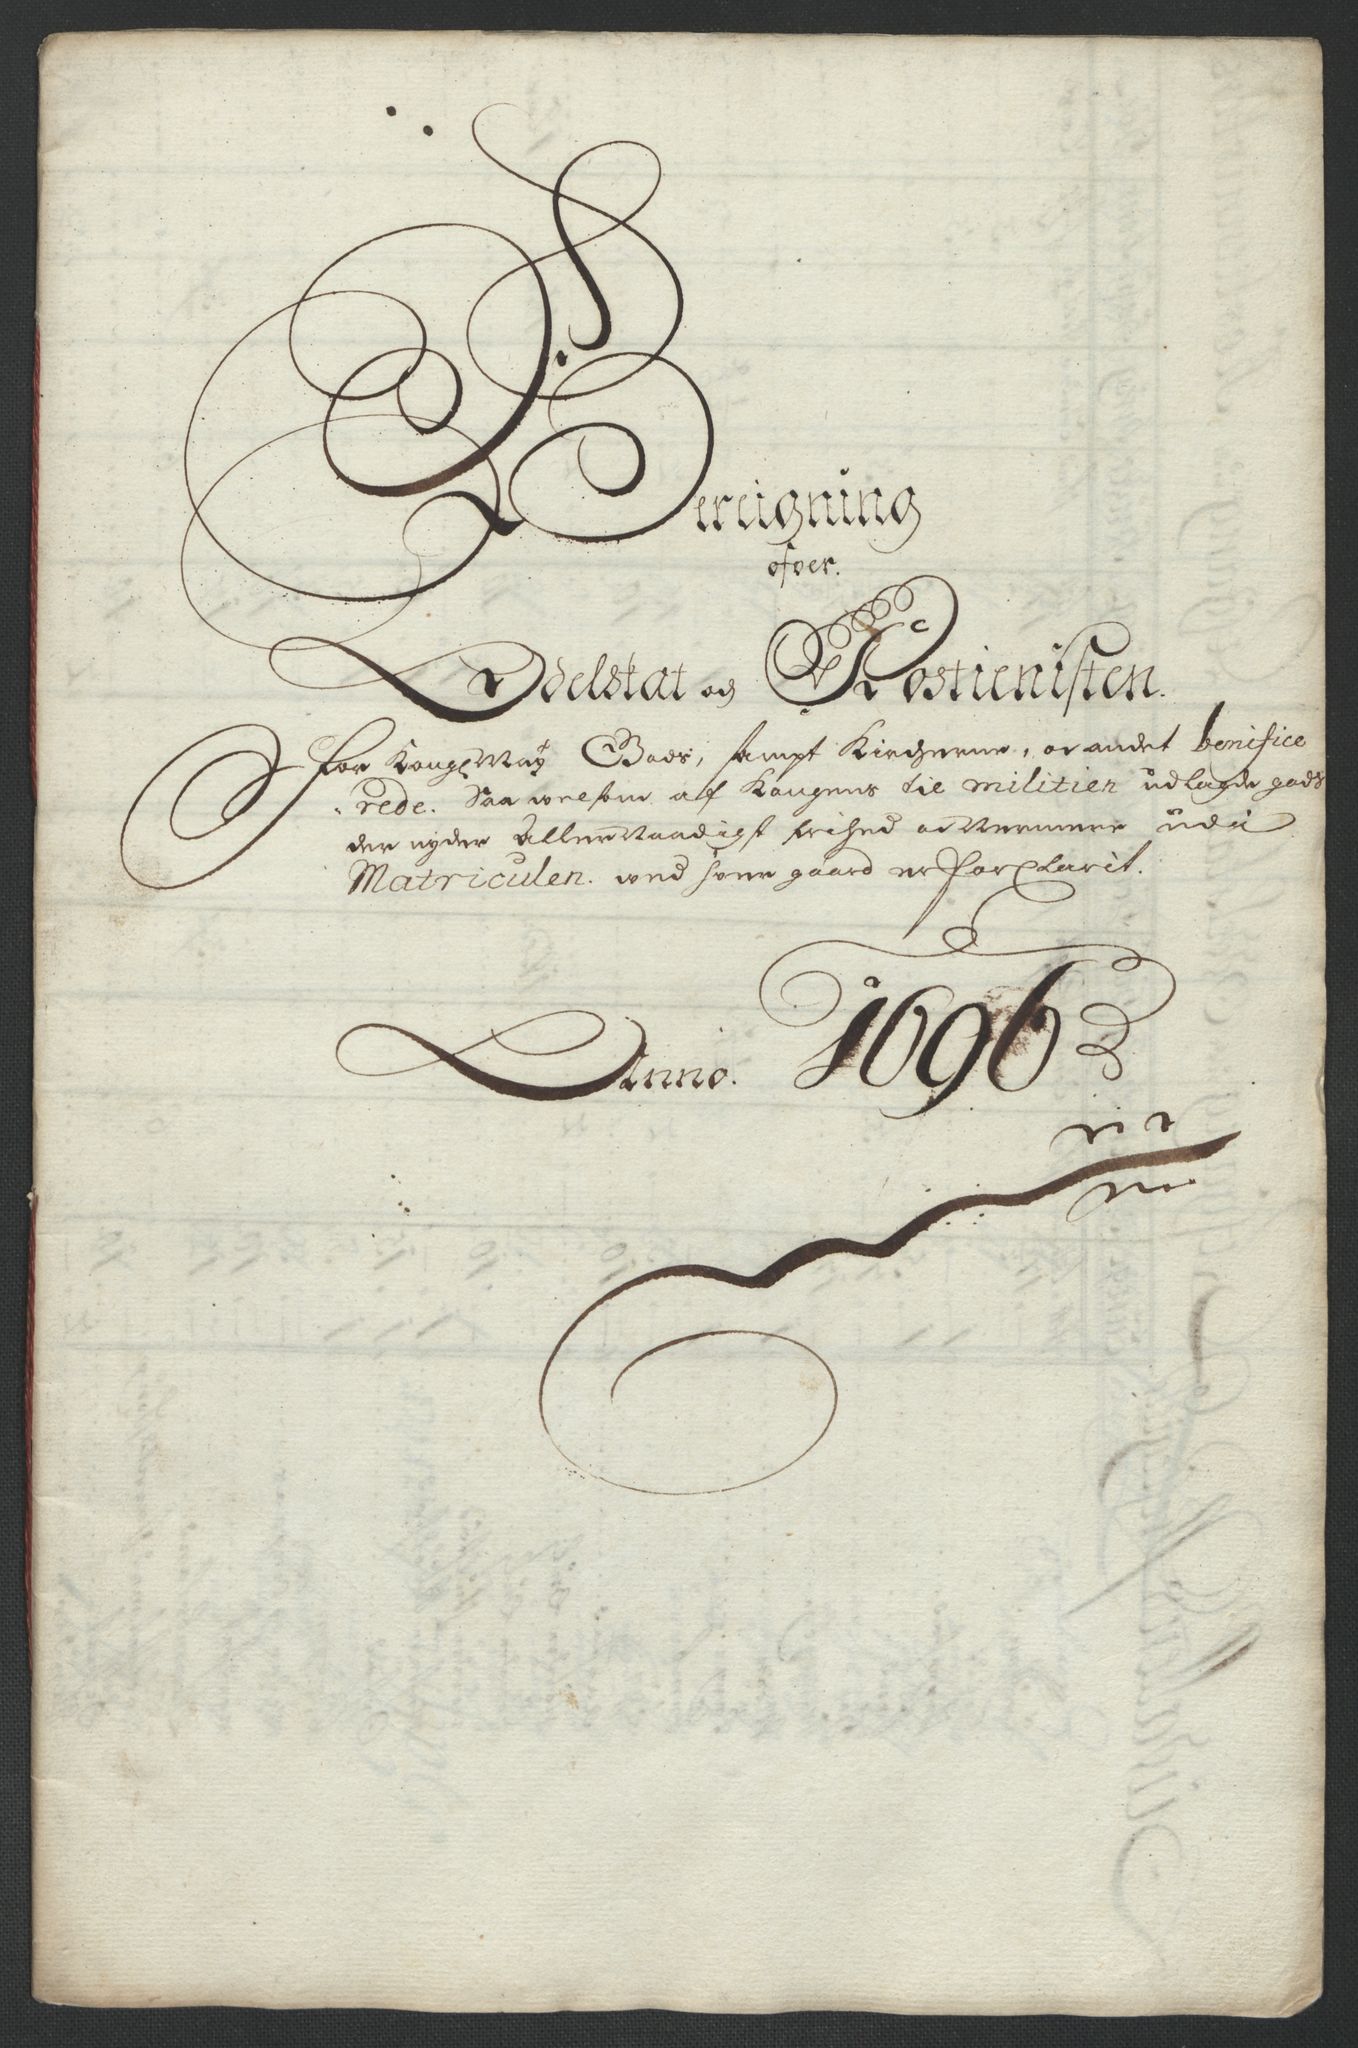 Bereigning
ofver.
Odelskat og Rostienisten.
for Kong: May: Gods, sampt Kircherne, oc andet benifice
rede. Saa velsom af Kongens til militien udlagde gods
der nyder Allernaadigst frihed oc Nermere udi
Matriculen. ved hver gaard er forClarit.
Anno. 1696